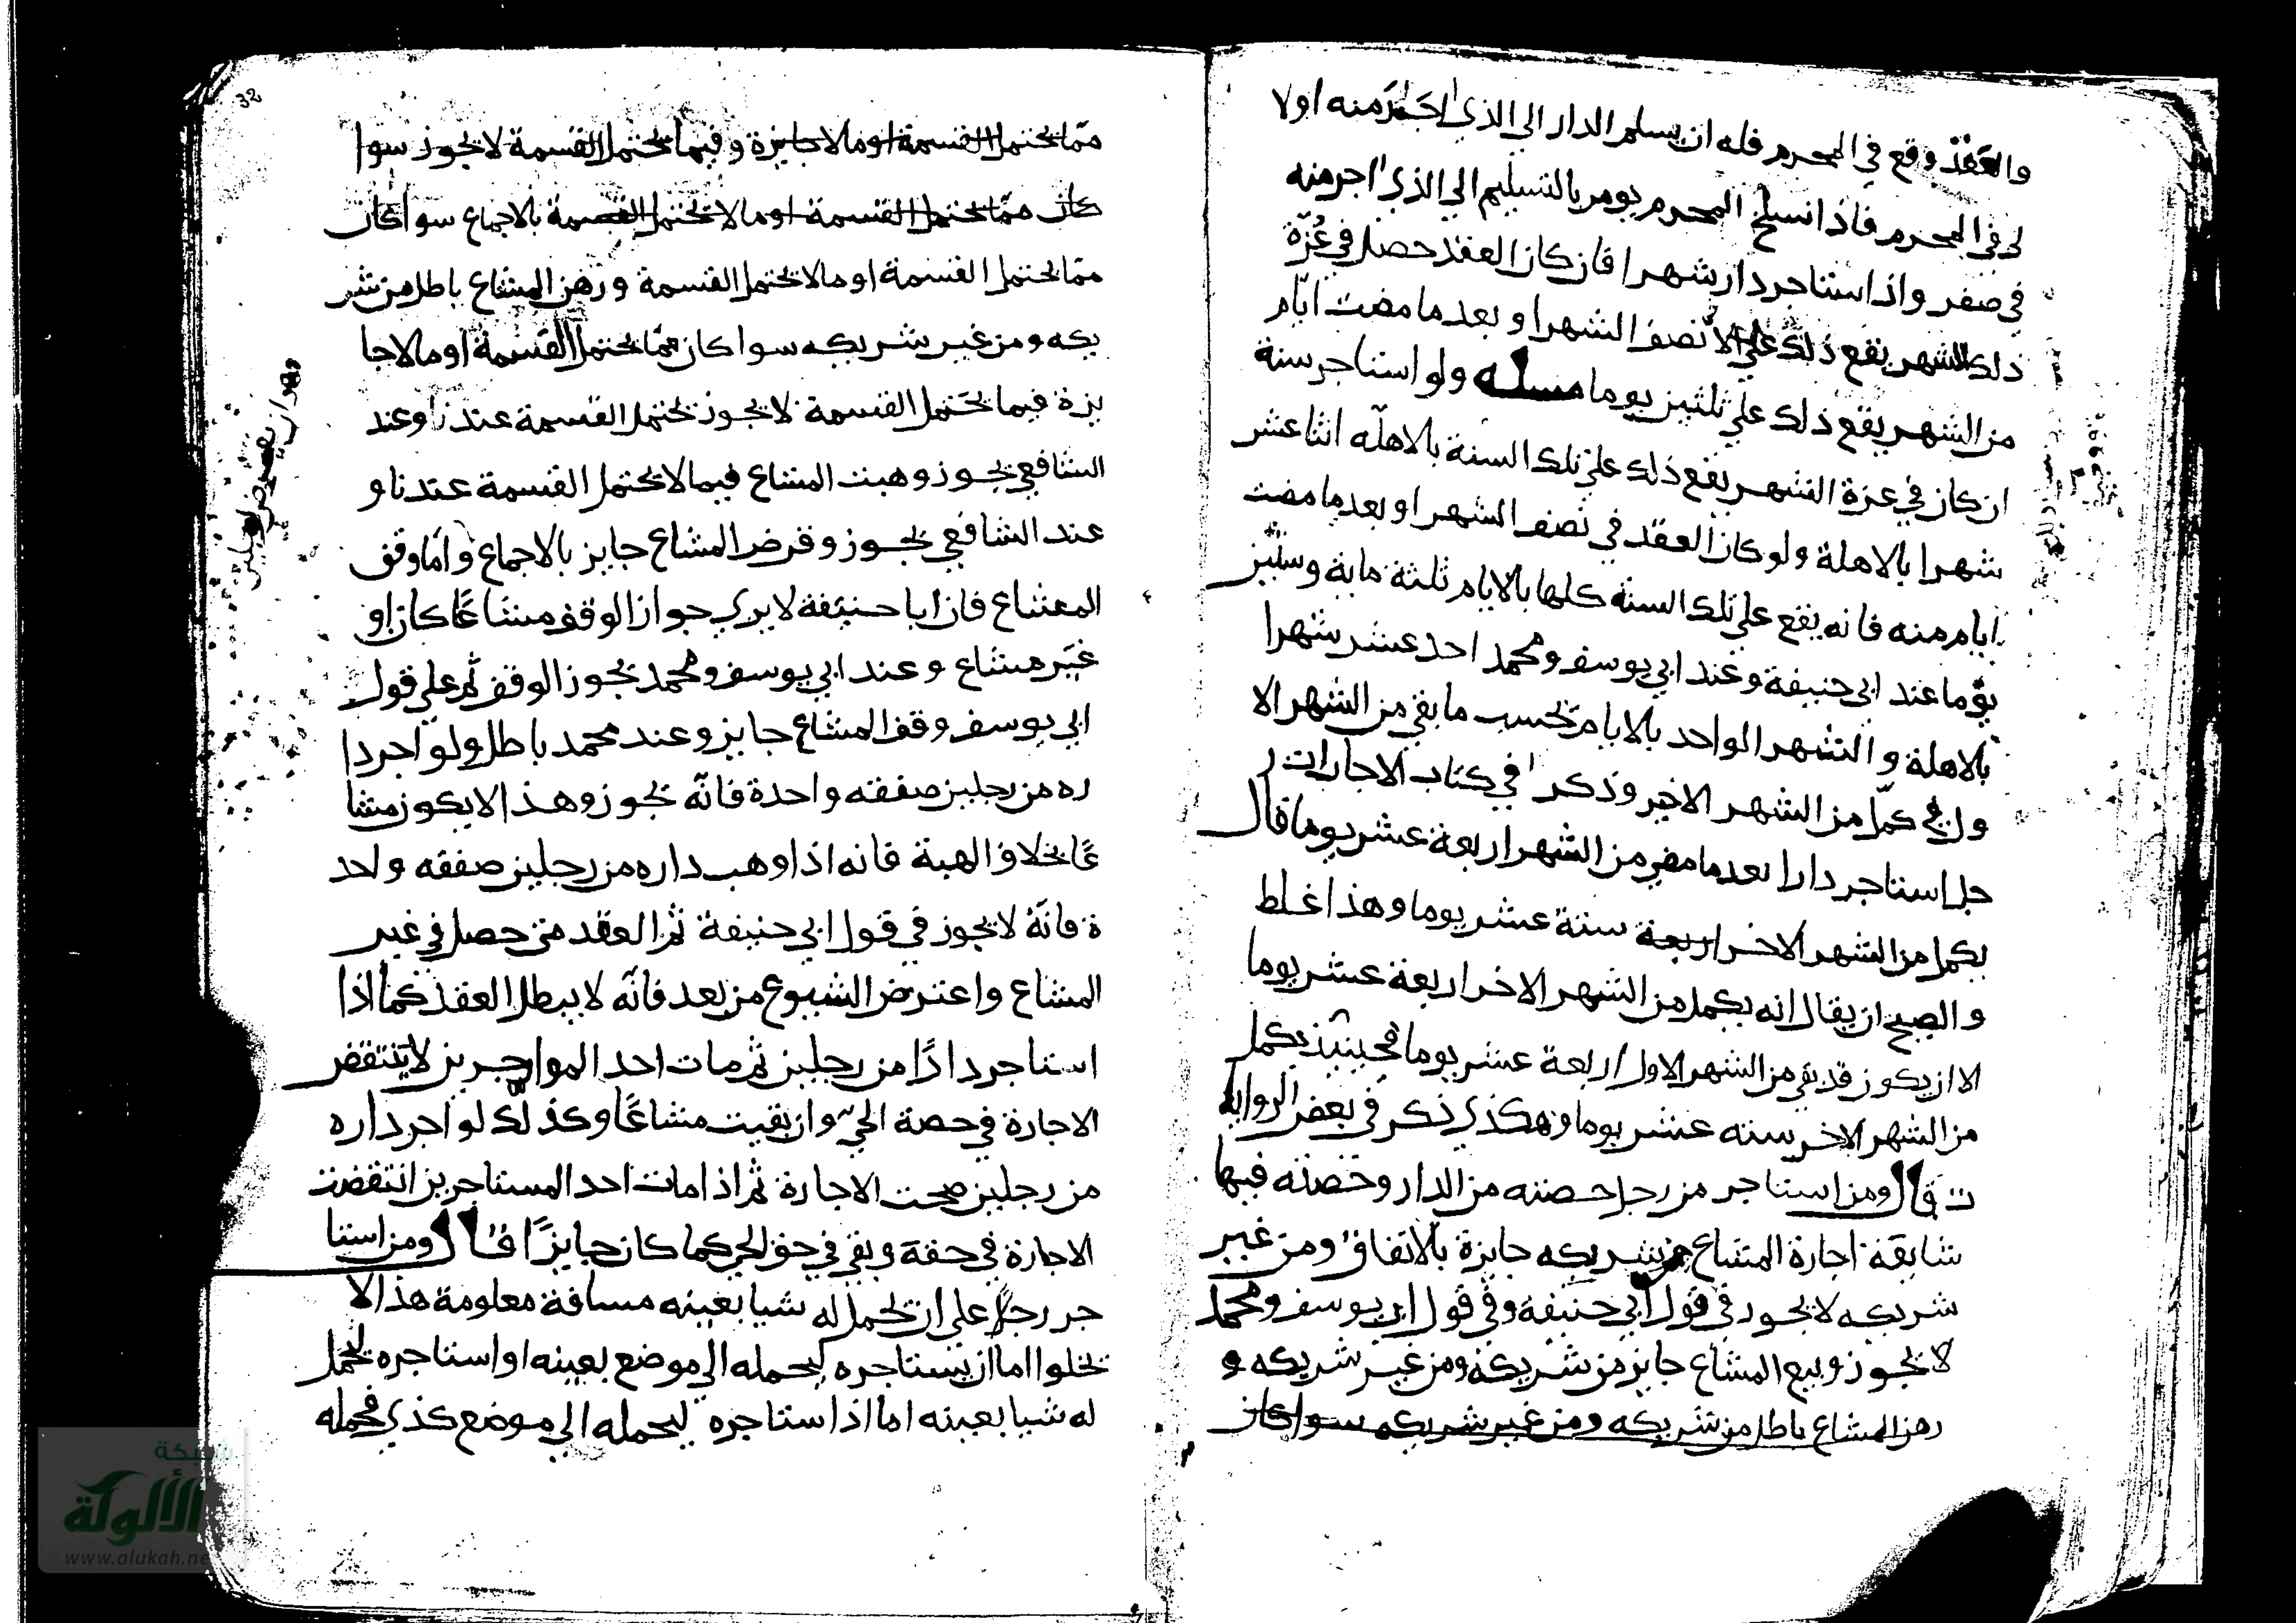 والعقد وقع في المحرم فله ان يسلم الدار الي الذي اجر منه اولا
لى في المحرم فاذا انسلخ المحرم يومر بالتسليم الي الذي اجر منه
في صفر واذا استاجر دار شهرا فان كان العقد حصل في غرة
ذلك الشهر يقع ذلك علي نصف الشهر او بعد ما مضت ايام
من الشهر يقع ذلك علي ثلثين يوما مسله ولو استاجر سنة
ان كان في غرة الشهر يقع ذلك علي تلك السنة بالاهلّه اثنا عشر
شهرا بالاهلة ولو كان العقد في نصف الشهر او بعد ما مضت
ايام منه فانه يقع علي تلك السنة كلها بالايام ثلثة ماية وستين
يوّما عند ابى حنيفة وعند ابي يوسف ومحمد احد عشر شهرا
بالاهلة و الشهر الواحد بالايام يحسب ما بقي من الشهر الا
ول كمّل من الشهر الاخير وذكر في كتاب الاجارات ر
جل استاجر دارا بعد ما مضي من الشهر اربعة عشر يوما قال
يكمل من الشهر الاخر اربعة ستة عشر يوما وهذا غلط
و الصيح ان يقال انه يكمل من الشهر الاخر اربعة عشر يوما
الا ان يكون قد بقي من الشهر الاول اربعة عشر يوما فحينيذ يكمل
من الشهر الاخر سته عشر يوما وهكذي ذكر في بعض الروايا
ت قال ومن استاجر من رجل حصته من الدار وحصته فيها
شايقة اجارة المشاع من شريكه جايزة بالاتفاق ومن غير
شريكه لا يجوز في قول ابي حنيفة وفي قول ابي يوسف ومحمد
لا يجوز وبيع المشاع جايز من شريكه ومن غير شريكه و
رهن المشاع باطل من شريكه ومن غير شريكه سوا كان
32
ممّا يحتمل القسمة او مالا جايزة وفيما يحتمل القسمة لا يجوز سوا
كان ممّا يحتمل القسمة او ما لا يحتمل القسمة بالاجماع سوا كان
ممّا يحتمل القسمة او مالا يحتمل القسمة ورهن المشاع باطل من شر
يكه ومن غير شريكه سوا كان ممّا يحتمل القسمة او مالا جا
يزة فيما يحتمل القسمة لا يجوز يحتمل القسمة عندنا وعند
الشافعي يجوز وهبت المشاع فيما لا يحتمل القسمة عندنا و
عند الشافعي يجوز وقرض المشاع جايز بالاجماع وامّا وقف
المعشاع فان ابا حنيفة لا يري جواز الوقف مشاعًا كان او
غير مشاع وعند ابي يوسف ومحمد يجوز الوقف ثم علي قول
ابي يوسف وقف المشاع جايز وعند محمد باطل ولو اجر دا
ره من رجلين صفقه واحدة فانّه يجوز وهذا لا يكون مشا
عًا بخلاف الهبة فانه اذا وهب داره من رجلين صفقه واحد
ة فانّه لا يجوز في قول ابي حنيفة ثم العقد متى حصل في غير
المشاع واعترض الشيوع من بعد فانّه لا يبطل العقد كما اذا
استاجر دارًا من رجلين ثم مات احد المواجرين لا ينتقض
الاجارة في حصة الحي وان بقيت مشاعًا وكذلك لو اجر داره
من رجلين صحت الاجارة ثم اذا مات احد المستاجرين انتقضت
الاجارة في حقه وبقى في حق الحي كما كان جايزًا قال ومن استا
جر رجلا على ان يحمل له شيا بعينه مسافة معلومة هذا لا
يخلوا اما ان يستاجره ليحمله الي موضع بعينه او استاجره ليحمل
له شيا بعينه اما اذا ستاجره ليحمله الي موضع كذي فحمله
شبكة
الألوكة
www.alukah.ne